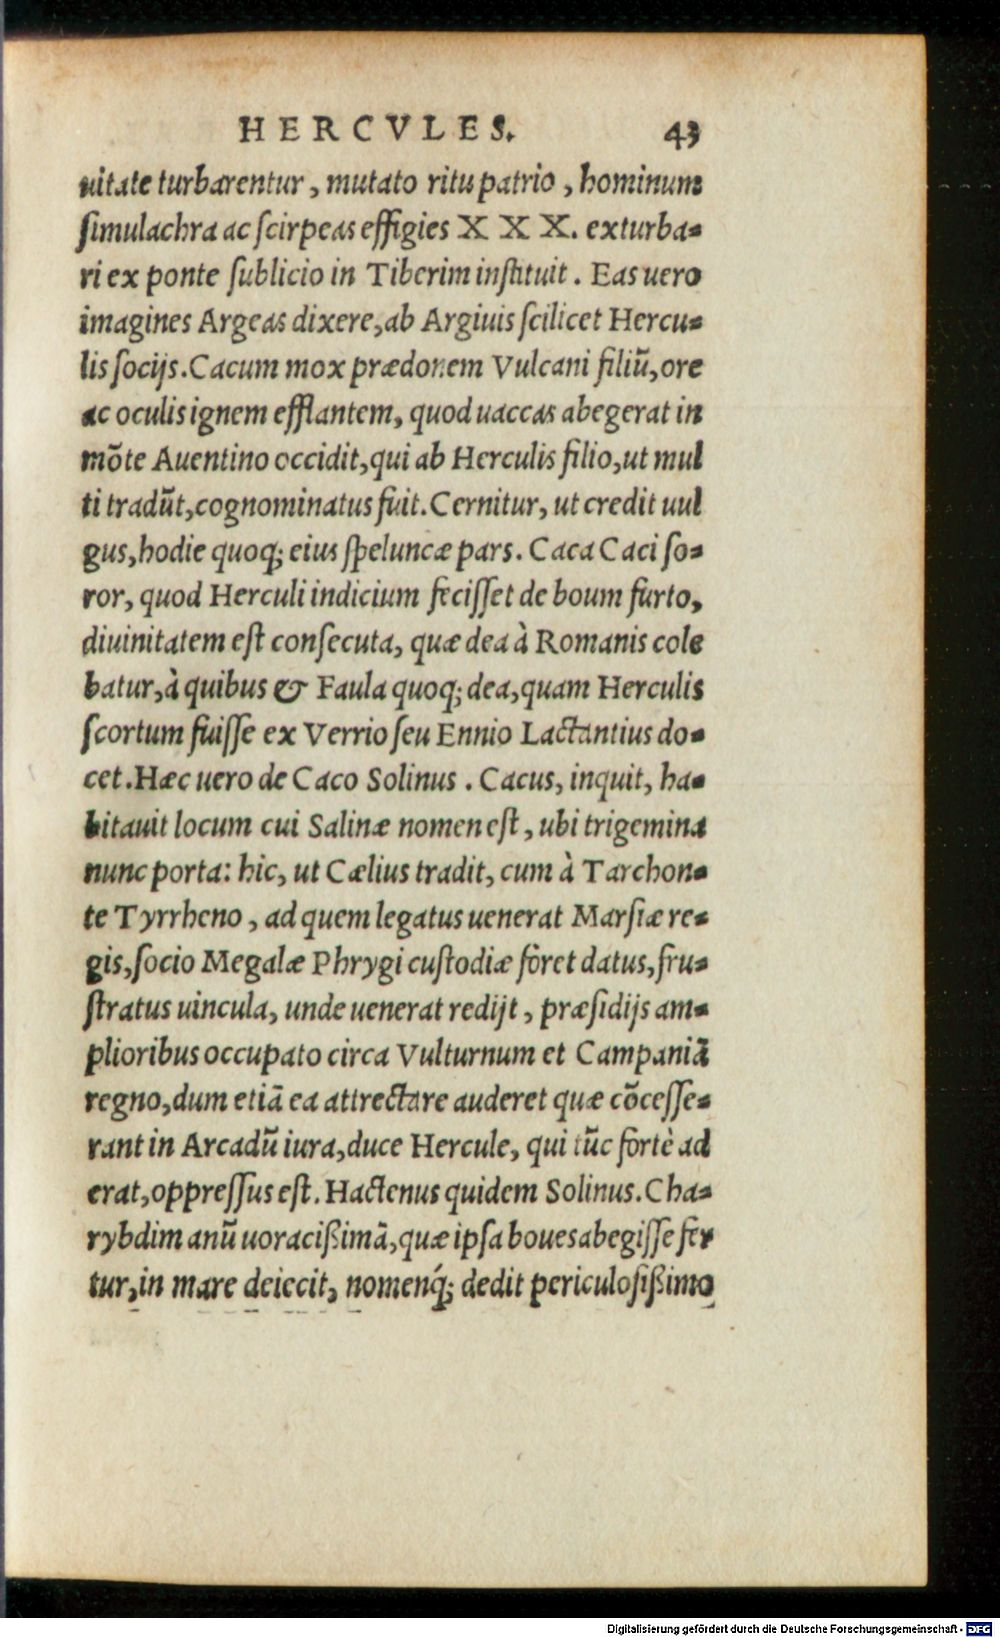 HERCVLES. 43
uitate turbarentur, mutato ritu patrio, hominum
ſimulachra ac ſcirpeas effigies X X X. exturba-
ri ex ponte ſublicio in Tiberim inſtituit. Eas uero
imagines Argeas dixere, ab Argiuis ſcilicet Hercu-
lis ſocijs. Cacum mox prædonem Vulcani filiũ, ore
ac oculis ignem efflantem, quod uaccas abegerat in
mõte Auentino occidit, qui ab Herculis filio, ut mul
ti tradũt, cognominatus fuit. Cernitur, ut credit uul
gus, hodie quoq; eius ſpeluncæ pars. Caca Caci ſo-
ror, quod Herculi indicium feciſſet de boum furto,
diuinitatem eſt conſecuta, quæ dea à Romanis cole
batur, à quibus & Faula quoq; dea, quam Herculis
ſcortum fuiſſe ex Verrio ſeu Ennio Lactantius do-
cet. Hæc uero de Caco Solinus. Cacus, inquit, ha-
bitauit locum cui Salinæ nomen eſt, ubi trigemina
nunc porta: hic, ut Cælius tradit, cum à Tarchon-
te Tyrrheno, ad quem legatus uenerat Marſiæ re-
gis, ſocio Megalæ Phrygi cuſtodiæ foret datus, fru-
ſtratus uincula, unde uenerat redijt, præſidijs am-
plioribus occupato circa Vulturnum et Campaniã
regno, dum etiã ea attrectare auderet quæ cõceſſe-
rant in Arcadũ iura, duce Hercule, qui tũc fortè ad
erat, oppreſſus eſt. Hactenus quidem Solinus. Cha-
rybdim anũ uoraciſsimã, quæ ipſa boues abegiſſe fer
tur, in mare deiecit, nomenq́; dedit periculoſiſsimo
Digitalisierung gefördert durch die Deutsche Forschungsgemeinschaft - DFG